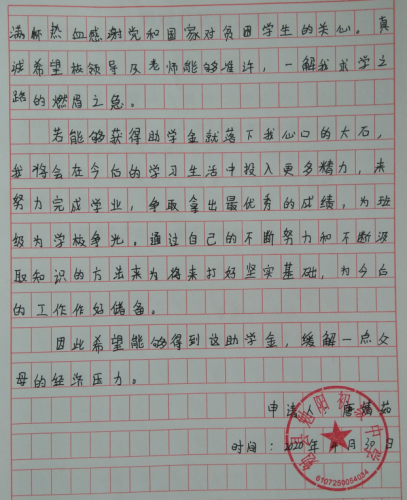 满怀热血感谢党和国家对贫困学生的关心。真
诚希望校领导及老师能够准许，一解我求学之
路的燃眉之急。
若能够获得助学金就落下我心口的大石，
我将会在今后的学习生活中投入更多精力，来
努力完成学业，争取拿出最优秀的成绩，为班
级为学校争光。通过自己的不断努力和不断汲
取知识的方法来为将来打好坚实基础，为今后
的工作作好储备。
因此希望能够得到该助学金，缓解一点父
母的经济压力。
申请人：唐
时间：2020年 月30日
勉县勉阳初级中学
6107250054034